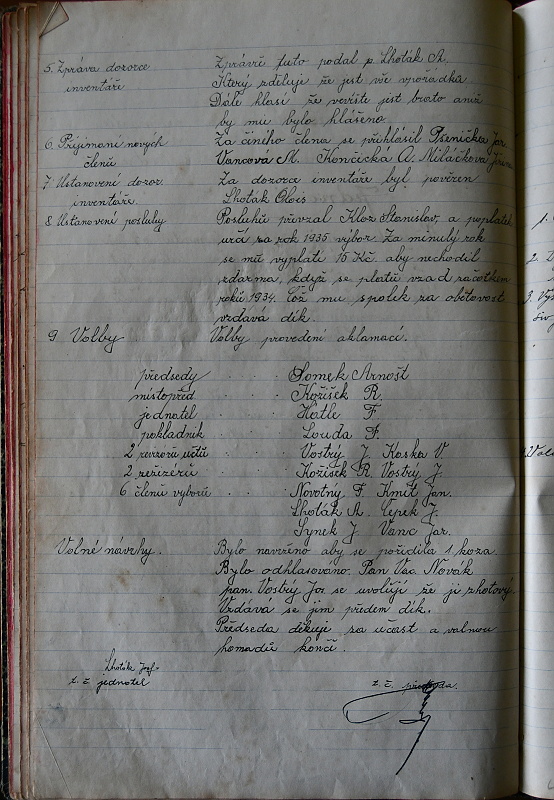 5. Zpráva dozorce Zprávu tuto podal p. Lhoták A.
inventáře Který zděluje že jest vše vpořádku
Dále hlasí že nevíště jest brato aniž
by mu bylo hlášeno.
6 Prijimaní nových Za činého člena se přihlásil Psenička Jar.
členů Vancova M. Končicka A. Miláčkova Jiřina
7 Ustanovení dozor. Za dozorce inventáře byl pověřen
inventáře. Lhoták Olois
8 Ustanovení posluhy Posluhu převzal Kloz Stanislav, a poplatek
určí za rok 1935 výbor. Za minulý rok
se mu vyplatí 15 Kč. aby nechodil
zdarma, když se platů vzad začátkem
roků 1934. Což mu spolek za obětavost
vzdavá dík.
9 Volby Volby provedeni aklamací.
předsedy . . . Somek Arnošt
místopřed . . . Kožišek R.
jednatel . . . Hatle F
pokladník . . . Louda F.
2 revizorů účtů . . Vostrý J. Kaska V.
2 režizérů . . . Kožíšek R. Vostrý J.
6 členů vyborů . . . Novotny F. Kmět Jan.
Lhoták A. Čepek J.
Synek J. Vanc Jar.
Volné návrhy. Bylo navrženo aby se pořídila 1 koza.
Bylo odhlasováno. Pan Vác. Novák
pan. Vostrý Jos. se uvolují že ji zhotový
Vzdává se jim předem dík.
Předseda děkuje za účast a valnou
homadu končí.
Lhoták Josef
t. č. jednatel t. č. předseda.